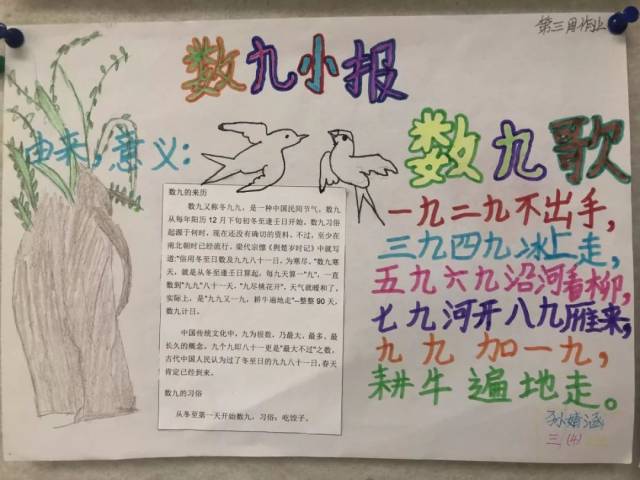 第三周作业
数九小报
由来，意义：
数九的来历
数九又称冬九九，是一种中国民间节气。数九
从每年阳历 12 月下旬初冬至逢壬日开始。数九习俗
起源于何时，现在还没有确切的资料。不过，至少在
南北朝时已经流行。梁代宗懔《荆楚岁时记》中就写
道："俗用冬至日数及九九八十一日，为寒尽。"数九寒
天，就是从冬至逢壬日算起，每九天算一"九"，一直
数到"九九"八十一天，"九尽桃花开"，天气就暖和了。
实际上，是"九九又一九，耕牛遍地走"--整整 90 天，
数九计日。
中国传统文化中，九为极数，乃最大、最多、最
长久的概念。九个九即八十一更是"最大不过"之数。
古代中国人民认为过了冬至日的九九八十一日，春天
肯定已经到来。
数九的习俗
从冬至第一天开始数九，习俗：吃饺子。
数九歌
一九二九不出手，
三九四九冰上走，
五九六九沿河看柳，
七九河开八九雁来，
九九加一九，
耕牛遍地走。
孙婧涵
三(4)